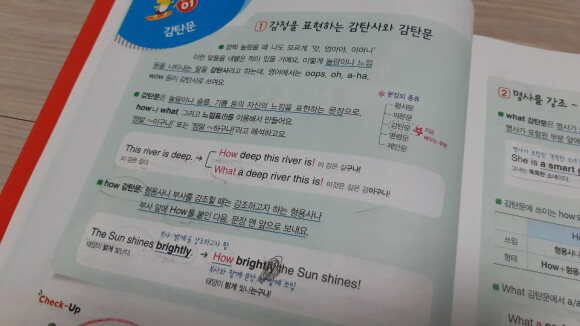 01
감탄문
1 감정을 표현하는 감탄사와 감탄문
깜짝 놀랐을 때 나도 모르게 '앗, 엄마야, 어머나'
이런 말들을 내뱉은 적이 있을 거예요. 이렇게 놀람이나 느낌
등을 나타내는 말을 감탄사라고 하는데, 영어에서는 oops, oh, a-ha,
wow 등이 감탄사로 쓰여요.
감탄문은 놀람이나 슬픔, 기쁨 등의 자신의 느낌을 표현하는 문장으로,
how나 what 그리고 느낌표(!)를 이용해서 만들어요.
'정말 ~이구나!' 또는 '정말 ~하구나!'라고 해석하고요.
문장의 종류
평서문
의문문
감탄문
명령문
제안문
This river is deep. → How deep this river is! 이 강은 깊구나!
이 강은 깊다.
What a deep river this is! 이것은 깊은 강이구나!
how 감탄문: 형용사나 부사를 강조할 때는 강조하고자 하는 형용사나
부사 앞에 How를 붙인 다음, 문장 맨 앞으로 보내요.
The Sun shines brightly. → How brightly the Sun shines!
태양이 밝게 빛난다.
태양이 밝게 빛나는구나!
Check-Up
2 명사를 강조
what 감탄문은 명사
명사가 포함된 부분 앞에
She is a smart
그녀는 똑똑한 소녀이다.
감탄문에 쓰이는 how
쓰임
형용사
형태
How+형용
What 감탄문에서 a/a